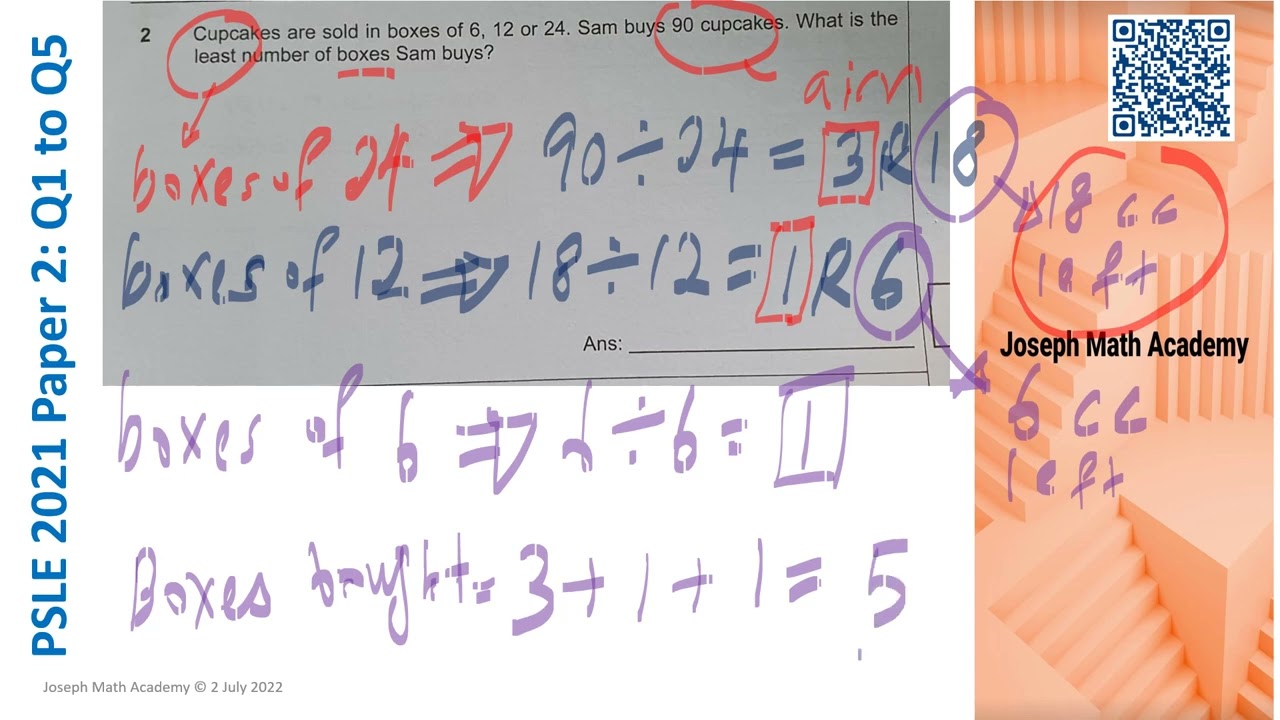 PSLE 2021 Paper 2: Q1 to Q5
2 Cupcakes are sold in boxes of 6, 12 or 24. Sam buys 90 cupcakes. What is the
least number of boxes Sam buys?
aim
boxes of 24 ⇒ 90 ÷ 24 = 3 R 18
18 cc
left
boxes of 12 ⇒ 18 ÷ 12 = 1 R 6
Ans:
Joseph Math Academy
6 cc
left
boxes of 6 ⇒ 6 ÷ 6 = 1
Boxes bought = 3 + 1 + 1 = 5
Joseph Math Academy © 2 July 2022